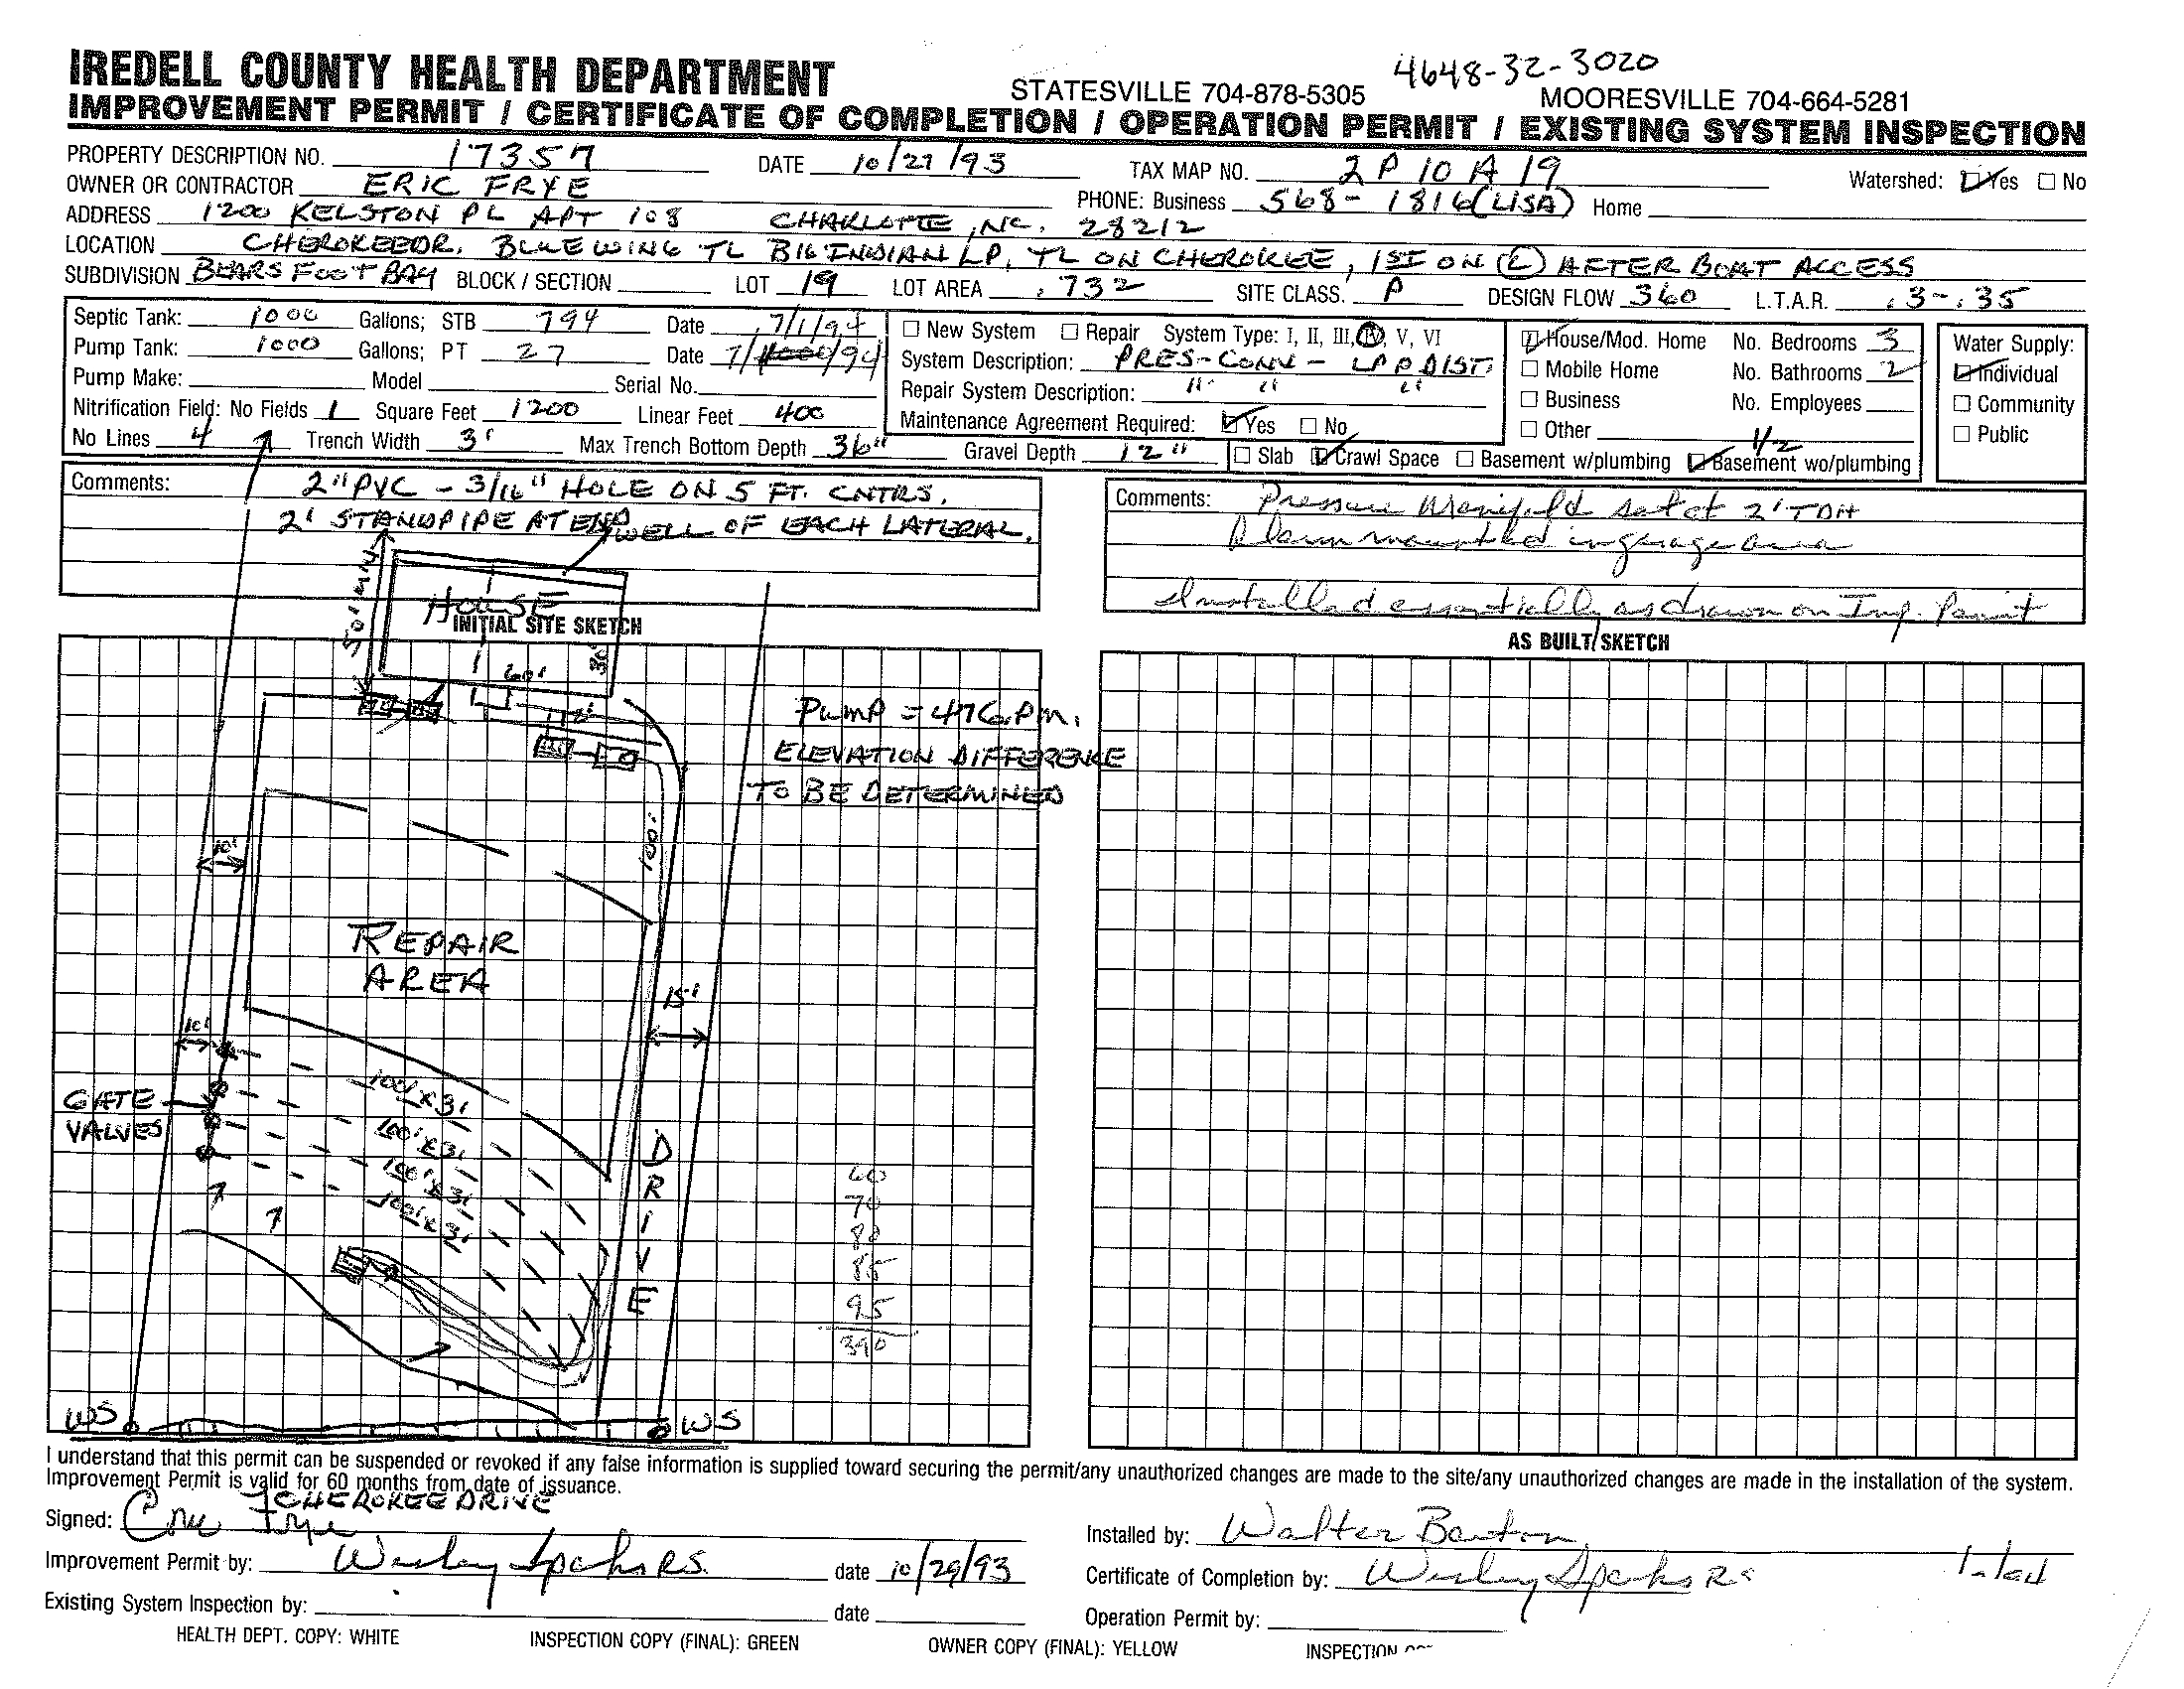 4648-32-3020
IREDELL COUNTY HEALTH DEPARTMENT STATESVILLE 704-878-5305 MOORESVILLE 704-664-5281
IMPROVEMENT PERMIT / CERTIFICATE OF COMPLETION / OPERATION PERMIT / EXISTING SYSTEM INSPECTION
PROPERTY DESCRIPTION NO. 17357 DATE 10/27/93 TAX MAP NO. 2 P 10 A 19 Watershed: Yes No
OWNER OR CONTRACTOR ERIC FRYE PHONE: Business 568-1816 (LISA) Home
ADDRESS 1200 KELSTON PL APT 108 CHARLOTTE, NC. 28212
LOCATION CHEROKEE DR. BLUEWING TL BIG INDIAN LP, TL ON CHEROKEE, 1ST ON (L) AFTER BOAT ACCESS
SUBDIVISION BEARS FOOT BAY BLOCK / SECTION LOT 19 LOT AREA .732 SITE CLASS. P DESIGN FLOW 360 L.T.A.R. .3-.35
Septic Tank: 1000 Gallons; STB 794 Date 7/1/94
Pump Tank: 1000 Gallons; PT 27 Date 7/ /94
Pump Make: Model Serial No.
Nitrification Field: No Fields 1 Square Feet 1200 Linear Feet 400
No Lines 4 Trench Width 3' Max Trench Bottom Depth 36" Gravel Depth 12"
New System Repair System Type: I, II, III, IV, V, VI
System Description: PRES-CONV - LPP DIST.
Repair System Description: " " "
Maintenance Agreement Required: Yes No
House/Mod. Home No. Bedrooms 3
Mobile Home No. Bathrooms 2
Business No. Employees
Other
1/2
Slab Crawl Space Basement w/plumbing Basement wo/plumbing
Water Supply:
Individual
Community
Public
Comments: 2" PVC - 3/16" HOLE ON 5 FT. CNTRS.
2' STANDPIPE AT END OF EACH LATERAL.
WELL
Comments: Pressure Manifold set at 2' TDH
Alarm mounted in garage area
Installed essentially as drawn on Imp. Permit
50' MIN
HOUSE
INITIAL SITE SKETCH
AS BUILT SKETCH
60'
30'
PUMP = 47 G.P.M.
ELEVATION DIFFERENCE
TO BE DETERMINED
100'
10'
REPAIR
AREA
15'
10'
GATE
VALVES
100' x 3'
100' x 3'
100' x 3'
100' x 3'
DRIVE
60
70
80
85
95
390
WS
WS
I understand that this permit can be suspended or revoked if any false information is supplied toward securing the permit/any unauthorized changes are made to the site/any unauthorized changes are made in the installation of the system.
Improvement Permit is valid for 60 months from date of issuance.
CHEROKEE DRIVE
Signed: Eric Frye
Improvement Permit by: Wesley Speaks RS. date 10/29/93
Existing System Inspection by: date
Installed by: Walter Benton
Certificate of Completion by: Wesley Speaks RS
Operation Permit by:
HEALTH DEPT. COPY: WHITE INSPECTION COPY (FINAL): GREEN OWNER COPY (FINAL): YELLOW INSPECTION